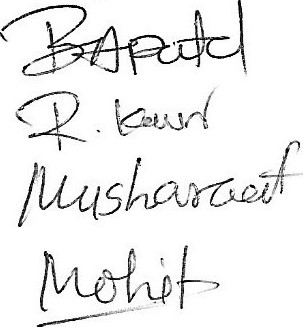 BAPatel
R. Kaur
Musharaat
Mohit